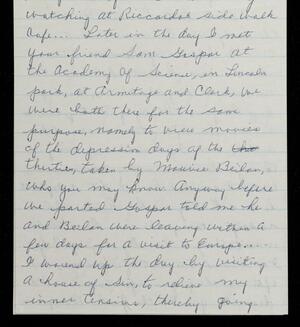 watching at Riccardos side walk
Cafe... Later in the day I met
your friend Sam Gaspar at
the Academy Of Science, in Lincoln
park, at Armitage and Clark, we
were both there for the same
purpose, namely to view movies
of the depression days of the
thirties, taken by Maurice Beilan,
who you may know Anyway before
we parted Gaspar told me he
and Beilan were leaving within a
few days for a visit to Europe...
I wound up the day by visiting
a house of Sin, to relieve my
inner tensions, thereby going